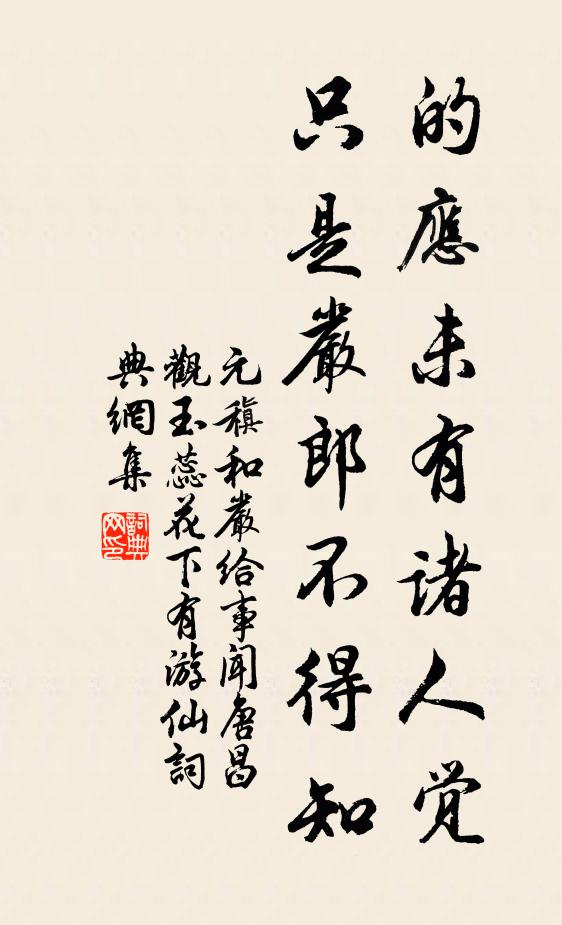 的應未有诸人觉
只是嚴郎不得知
元稹和嚴给事闻唐昌
觀玉蕊花下有游仙詞
典網集
詞典网印